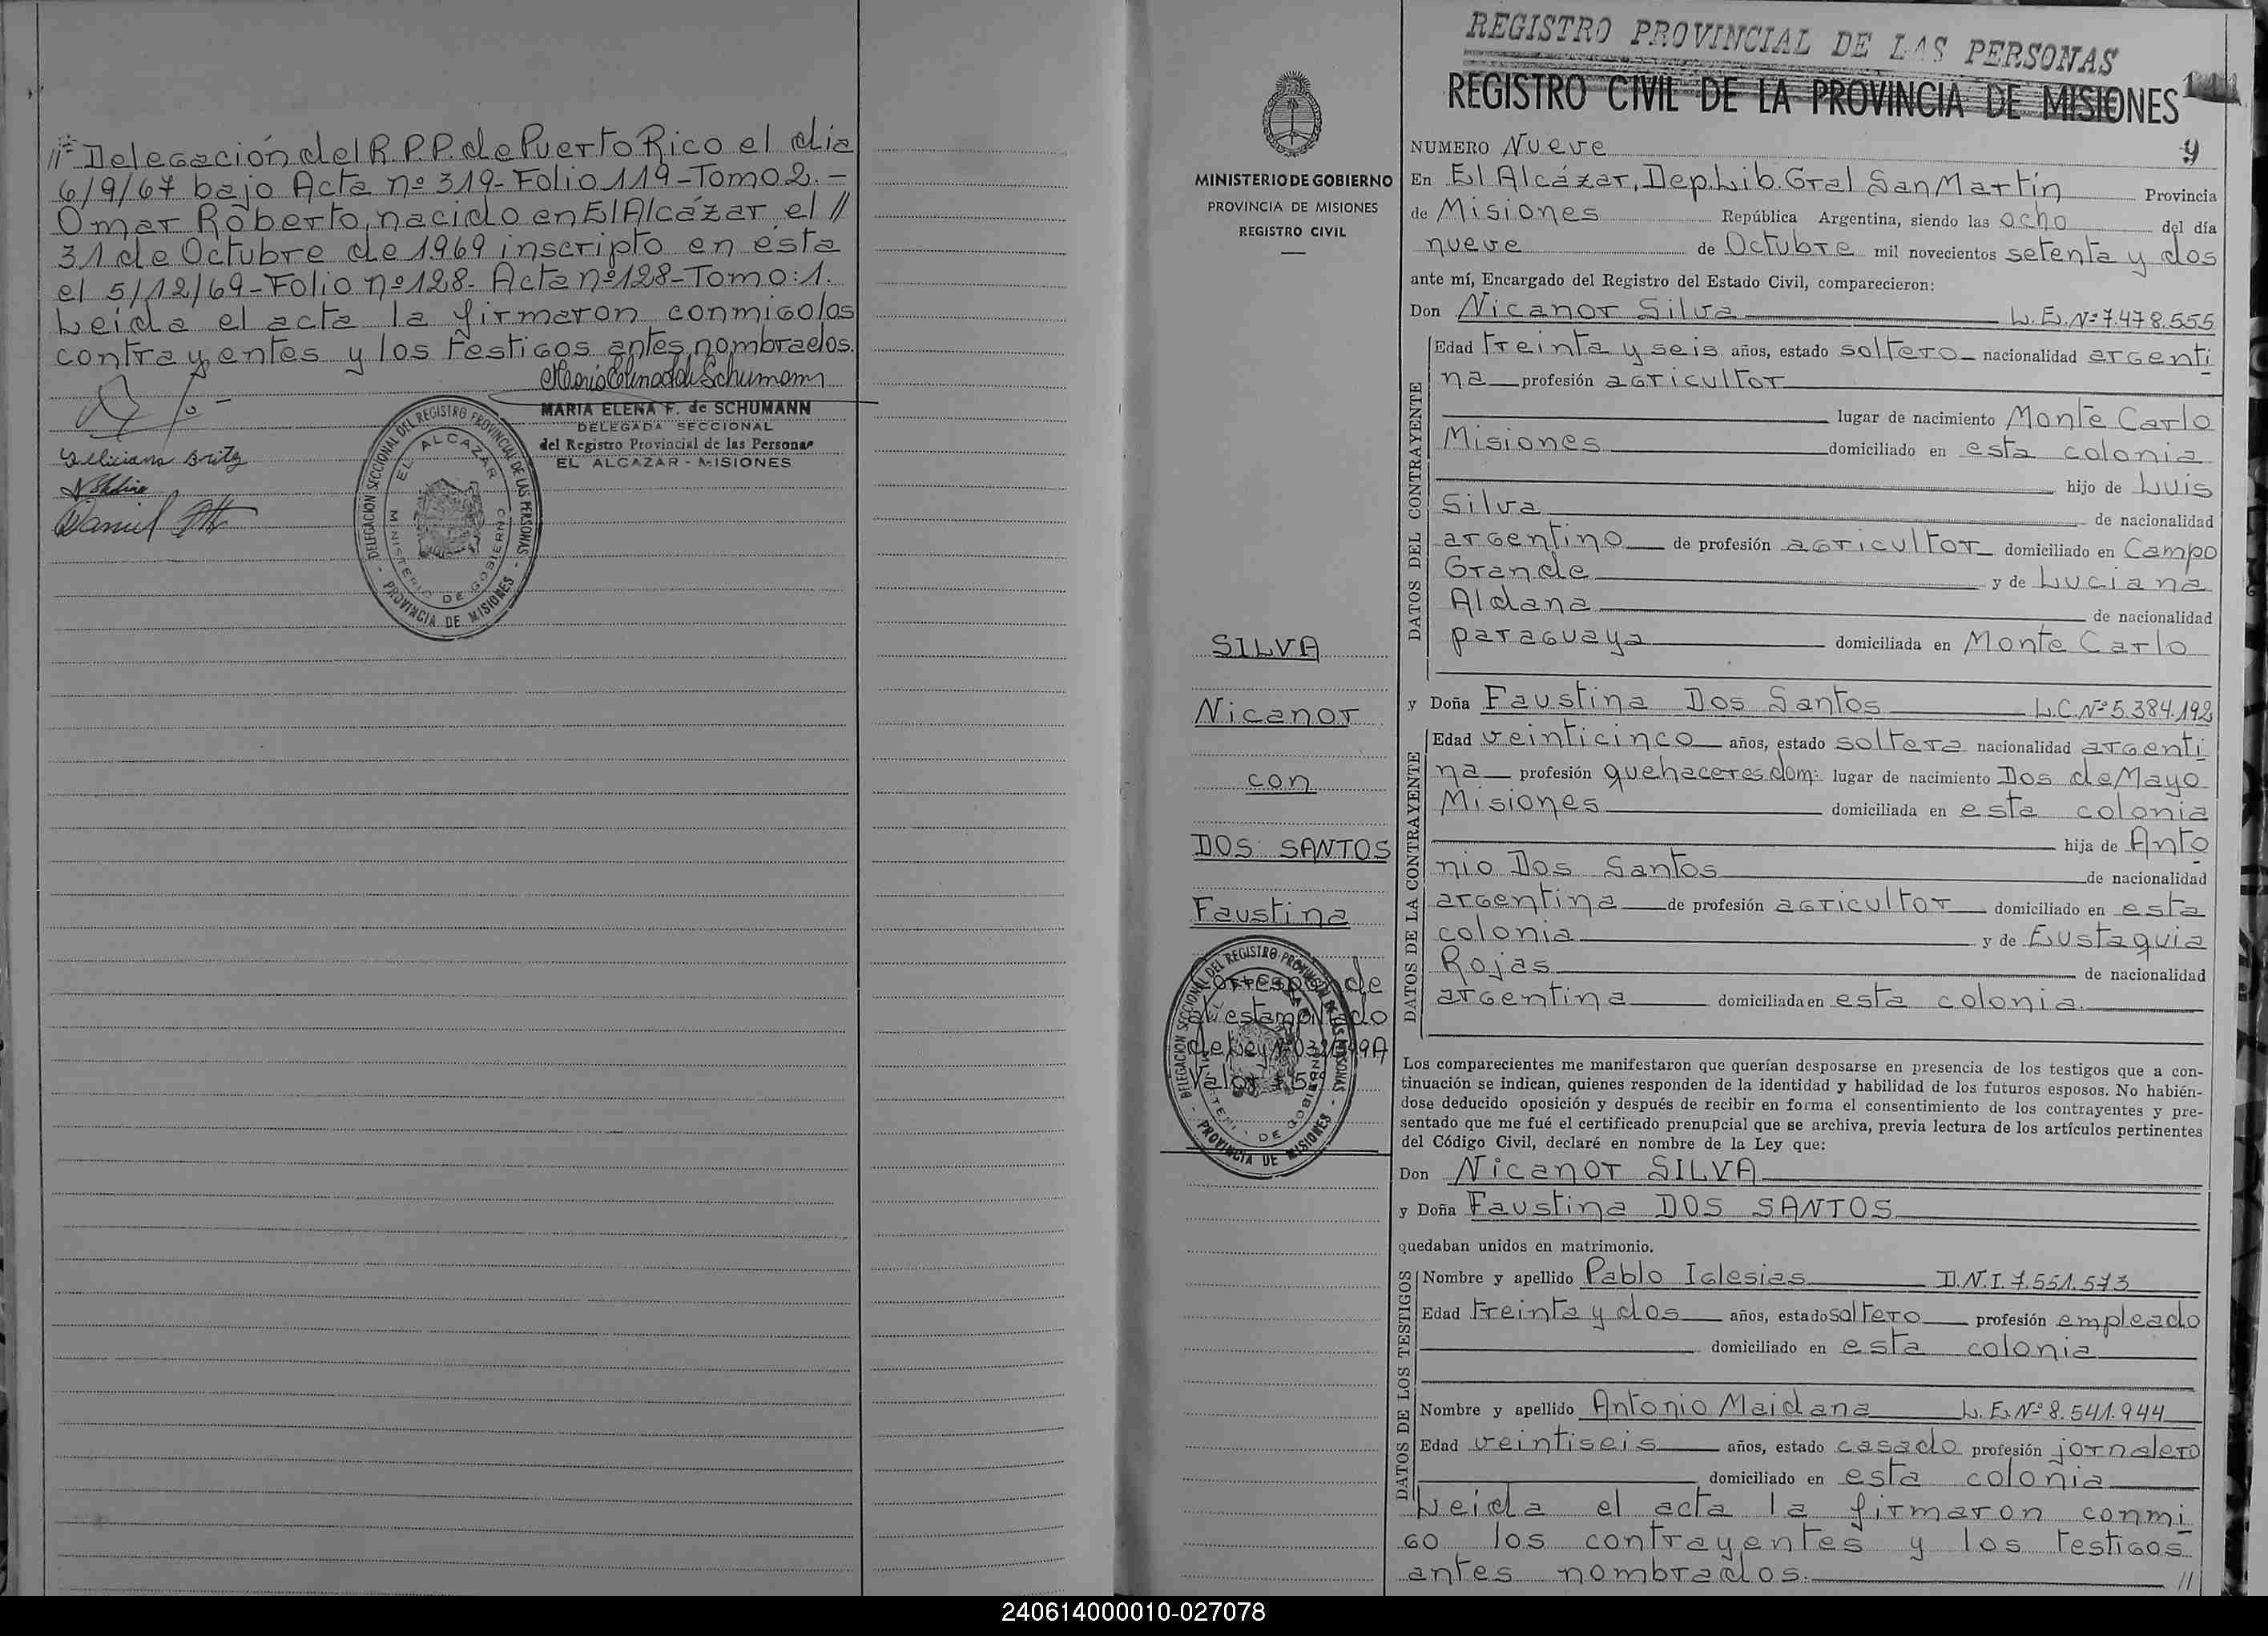 //= Delegación del R.P.P. de Puerto Rico el día
6/9/67 bajo Acta nº 319- Folio 119-Tomo 2.-
Omar Roberto, nacido en El Alcázar el //
31 de Octubre de 1969 inscripto en ésta
el 5/12/69-Folio nº 128- Acta nº 128-Tomo: 1.
Leída el acta la firmaron conmigo los
contrayentes y los testigos antes nombrados.
MARIA ELENA F. de SCHUMANN
DELEGADA SECCIONAL
del Registro Provincial de las Personas
EL ALCAZAR - MISIONES
DELEGACION SECCIONAL DEL REGISTRO PROVINCIAL DE LAS PERSONAS - PROVINCIA DE MISIONES -
EL ALCAZAR
MINISTERIO DE GOBIERNO
Daniel
MINISTERIO DE GOBIERNO
PROVINCIA DE MISIONES
REGISTRO CIVIL
SILVA
Nicanor
con
DOS SANTOS
Faustina
Corresponde
estampillado
de Ley Nº
Valor $ 5
DELEGACION SECCIONAL DEL REGISTRO PROVINCIAL DE LAS PERSONAS - PROVINCIA DE MISIONES -
REGISTRO PROVINCIAL DE LAS PERSONAS
REGISTRO CIVIL DE LA PROVINCIA DE MISIONES
NUMERO Nueve 9
En El Alcázar, Dep. Lib. Gral San Martín Provincia
de Misiones República Argentina, siendo las ocho del día
nueve de Octubre mil novecientos setenta y dos
ante mí, Encargado del Registro del Estado Civil, comparecieron:
Don Nicanor Silva L.E. Nº 7.478.555
DATOS DEL CONTRAYENTE
Edad treinta y seis años, estado soltero nacionalidad argenti
na profesión agricultor
lugar de nacimiento Monte Carlo
Misiones domiciliado en esta colonia
hijo de Luis
Silva de nacionalidad
argentino de profesión agricultor domiciliado en Campo
Grande y de Luciana
Aldana de nacionalidad
paraguaya domiciliada en Monte Carlo
y Doña Faustina Dos Santos L.C. Nº 5.384.192
DATOS DE LA CONTRAYENTE
Edad veinticinco años, estado soltera nacionalidad argenti
na profesión quehaceres dom: lugar de nacimiento Dos de Mayo
Misiones domiciliada en esta colonia
hija de Anto
nio Dos Santos de nacionalidad
argentina de profesión agricultor domiciliado en esta
colonia y de Eustaquia
Rojas de nacionalidad
argentina domiciliada en esta colonia.
Los comparecientes me manifestaron que querían desposarse en presencia de los testigos que a con-
tinuación se indican, quienes responden de la identidad y habilidad de los futuros esposos. No habién-
dose deducido oposición y después de recibir en forma el consentimiento de los contrayentes y pre-
sentado que me fué el certificado prenupcial que se archiva, previa lectura de los artículos pertinentes
del Código Civil, declaré en nombre de la Ley que:
Don Nicanor SILVA
y Doña Faustina DOS SANTOS
quedaban unidos en matrimonio.
DATOS DE LOS TESTIGOS
Nombre y apellido Pablo Iglesias D.N.I. 7.551.573
Edad treinta y dos años, estado soltero profesión empleado
domiciliado en esta colonia
Nombre y apellido Antonio Maidana L.E. Nº 8.541.944
Edad veintiseis años, estado casado profesión jornalero
domiciliado en esta colonia
Leida el acta la firmaron conmi
go los contrayentes y los testigos
antes nombrados. //
240614000010-027078